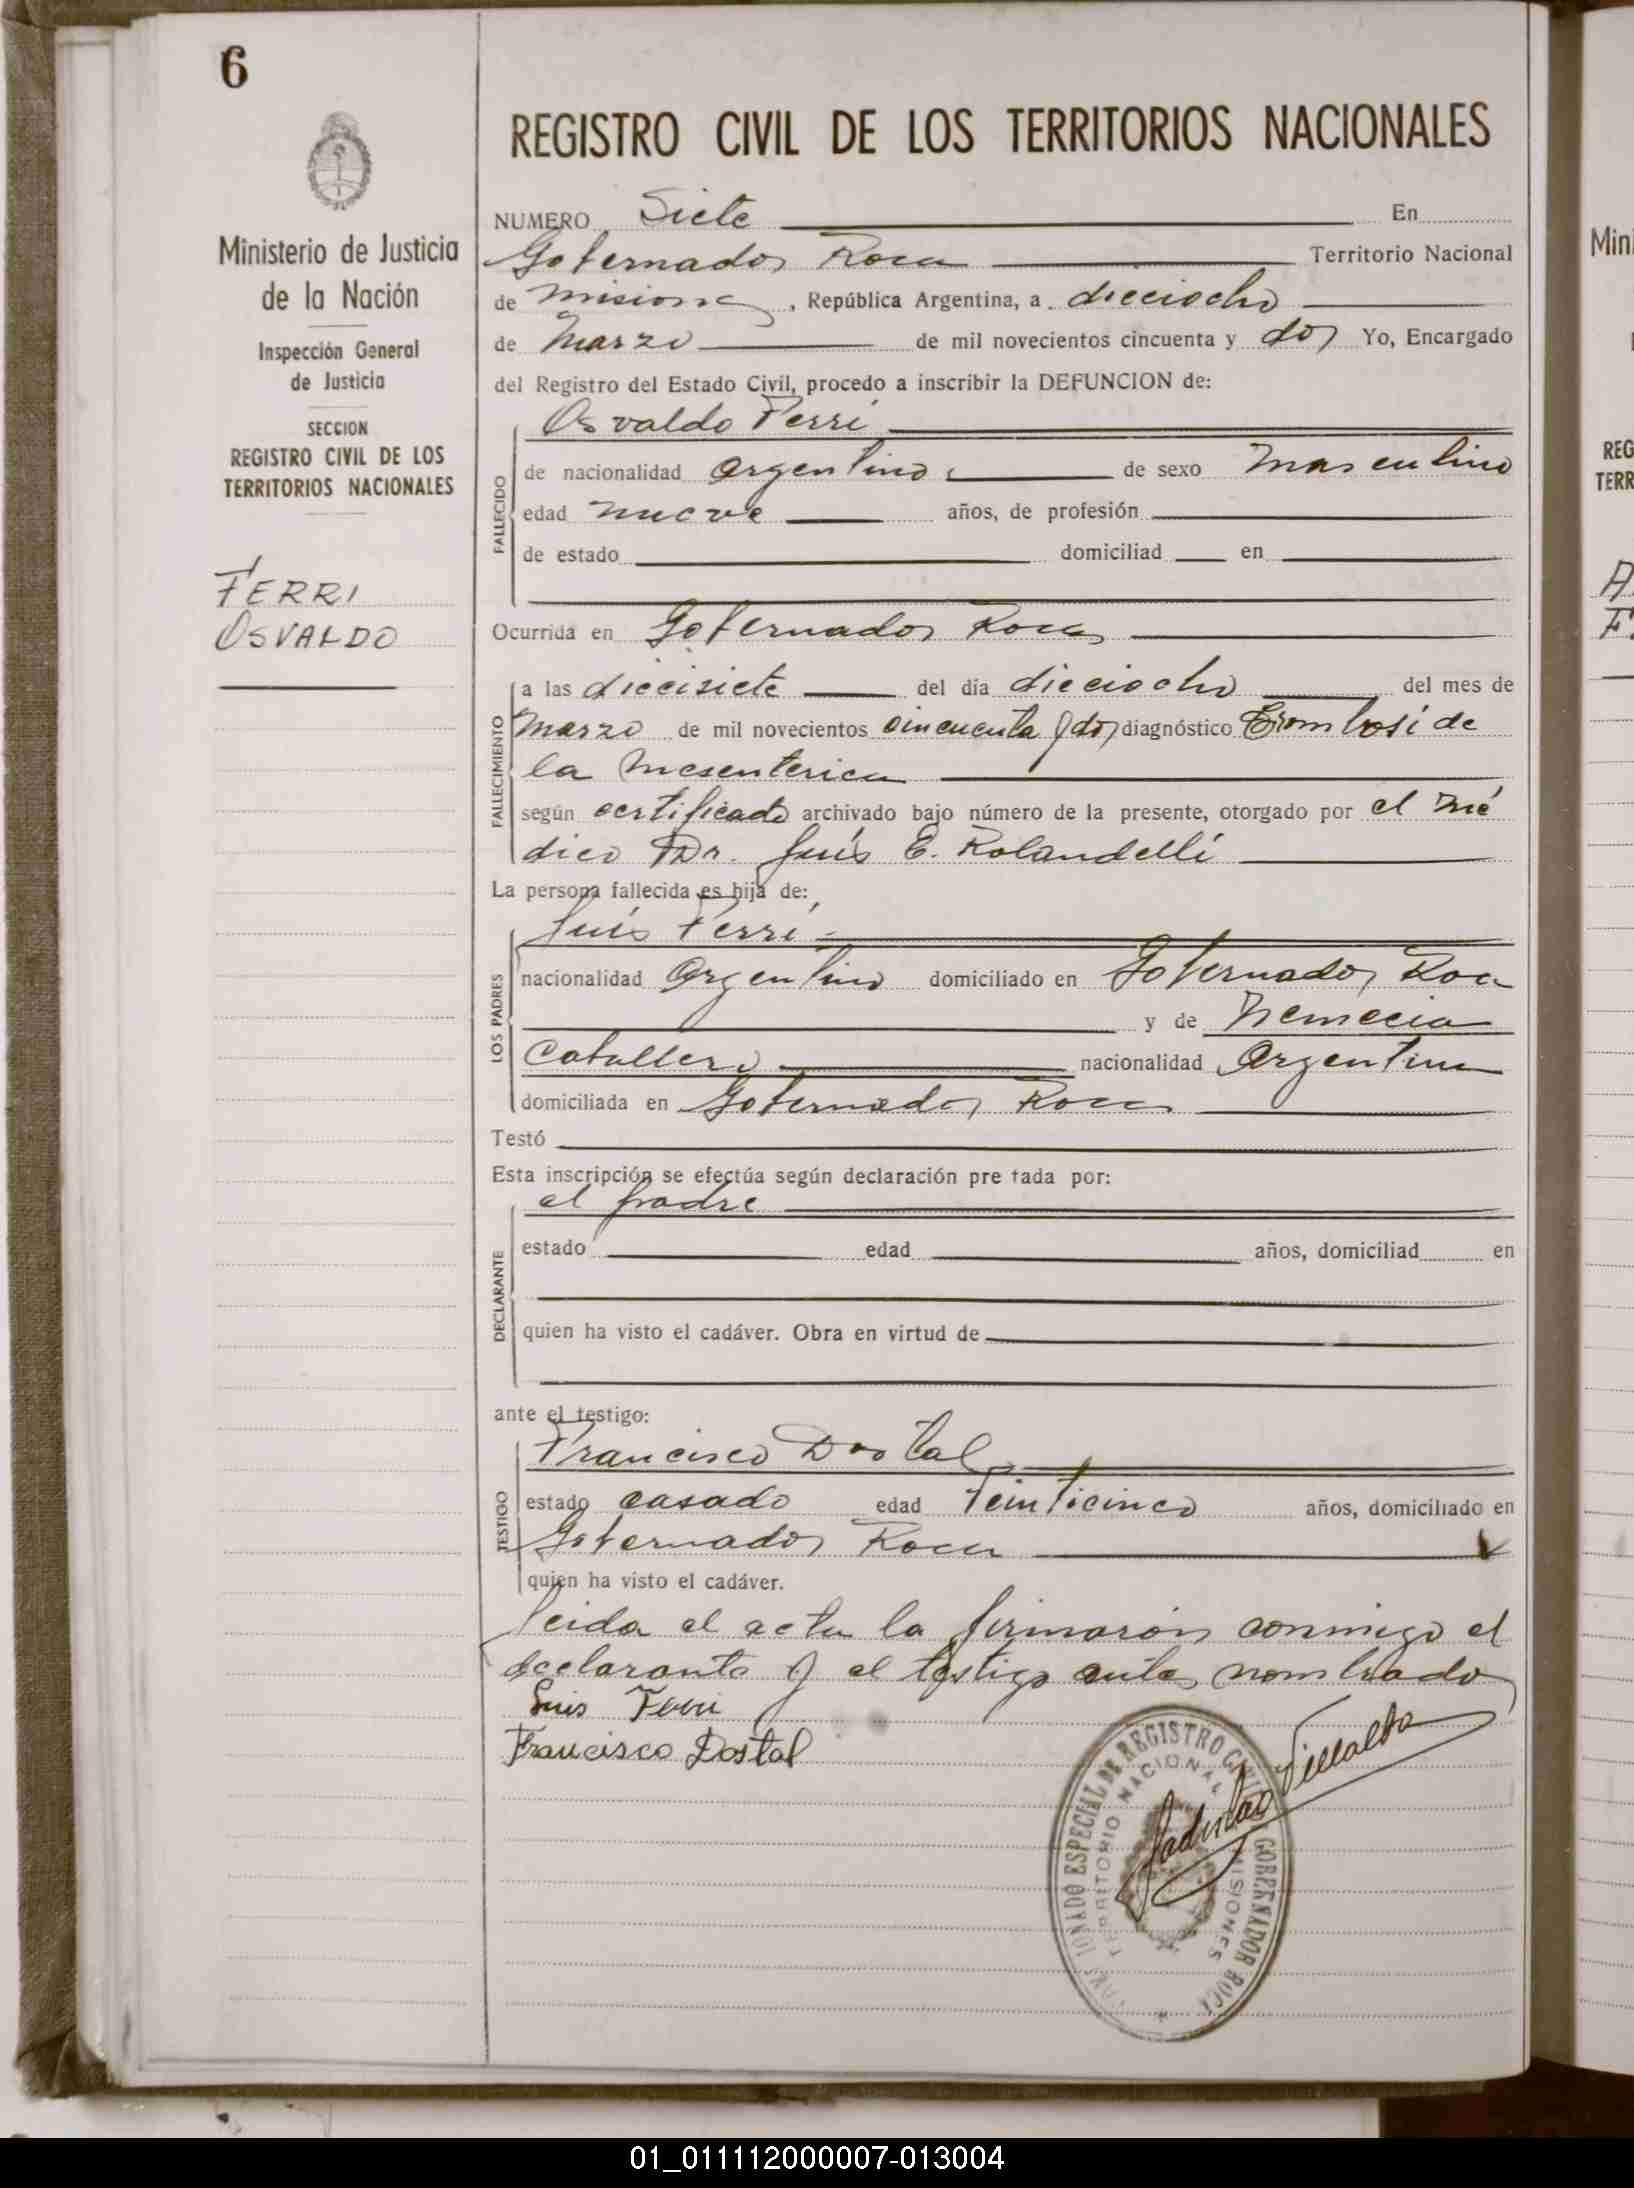 6
REGISTRO CIVIL DE LOS TERRITORIOS NACIONALES
Ministerio de Justicia
de la Nación
Inspección General
de Justicia
SECCION
REGISTRO CIVIL DE LOS
TERRITORIOS NACIONALES
FERRI
OSVALDO
NUMERO Siete En
Gobernador Roca Territorio Nacional
de Misiones, República Argentina, a dieciocho
de Marzo de mil novecientos cincuenta y dos Yo, Encargado
del Registro del Estado Civil, procedo a inscribir la DEFUNCION de:
Osvaldo Ferri
FALLECIDO
de nacionalidad Argentino de sexo Masculino
edad nueve años, de profesión
de estado domiciliad en
Ocurrida en Gobernador Roca
FALLECIMIENTO
a las diecisiete del día dieciocho del mes de
Marzo de mil novecientos cincuenta y dos diagnóstico Trombosi de
la Mesenterica
según certificado archivado bajo número de la presente, otorgado por el mé
dico Dr. Luís E. Rolandelli
La persona fallecida es hija de:
LOS PADRES
Luís Ferri
nacionalidad Argentino domiciliado en Gobernador Roca
y de Nemecia
Caballero nacionalidad Argentina
domiciliada en Gobernador Roca
Testó
Esta inscripción se efectúa según declaración pre tada por:
DECLARANTE
el padre
estado edad años, domiciliad en
quien ha visto el cadáver. Obra en virtud de
ante el testigo:
TESTIGO
Francisco Dostal
estado casado edad Veinticinco años, domiciliado en
Gobernador Roca
quien ha visto el cadáver.
Leida el acta la firmarón conmigo el
declarante y el testigo antes nombrado
Luis Ferri
Francisco Dostal
Ladislao Villalba
ESPECIAL DE REGISTRO CIVIL GOBERNADOR ROCA
TERRITORIO NACIONAL MISIONES
Mini
REG
TERR
01_011112000007-013004